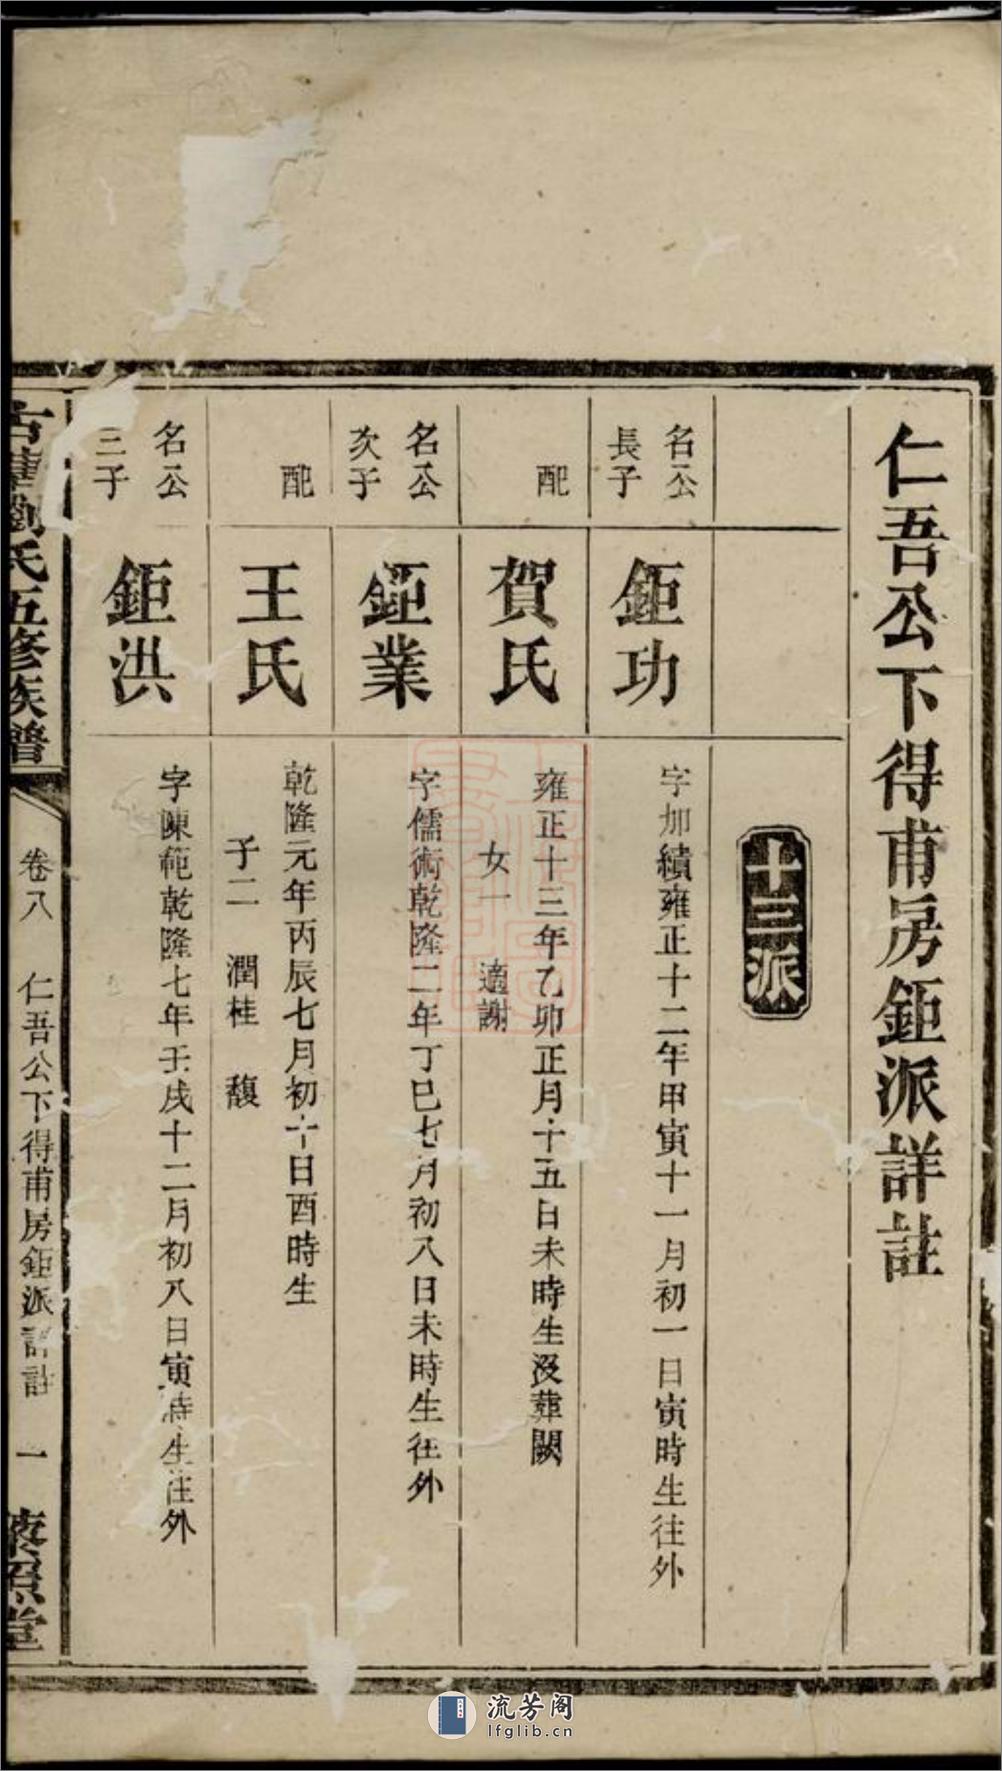 仁吾公下得甫房鉅派詳註
十三派
名公
長子
鉅功
字加績雍正十二年甲寅十一月初一日寅時生往外
配
賀氏
雍正十三年乙卯正月十五日未時生沒葬闕
女一 適謝
名公
次子
鉅業
字儒術乾隆二年丁巳七月初八日未時生往外
配
王氏
乾隆元年丙辰七月初十日酉時生
子二 潤桂 馥
名公
三子
鉅洪
字陳範乾隆七年壬戌十二月初八日寅時生往外
劉氏五修族譜
卷八 仁吾公下得甫房鉅派詳註 一
照堂
流芳阁
lfglib.cn